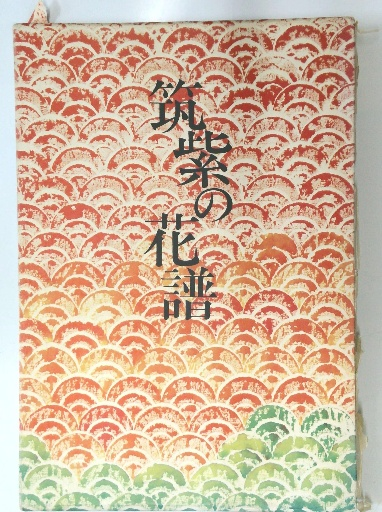 筑紫の花譜